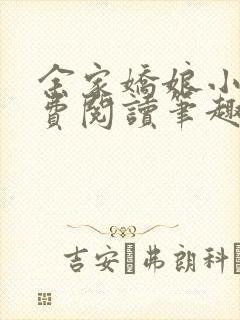 金家嬌娘小
費閱讀筆趣
吉安·弗朗科